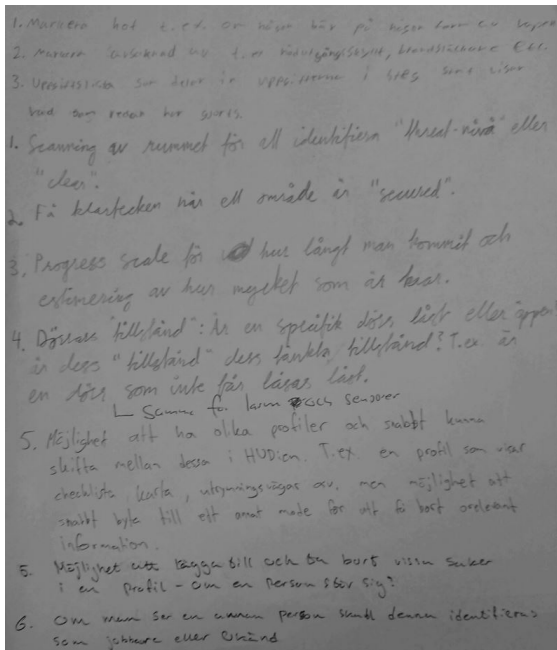 1. Markera hot t.ex. om någon bär på någon form av vapen
2. Markera avsaknad av t.ex. nödutgångsskylt, brandsläckare etc.
3. Uppgiftslista som delar in uppgifterna i steg som visar
vad som redan har gjorts.
1. Scanning av rummet för att identifiera "threat-nivå" eller
"clear".
2. Få klartecken när ett område är "secured".
3. Progress scale för hur långt man kommit och
estimering av hur mycket som är kvar.
4. Dörrars "tillstånd": Är en specifik dörr låst eller öppen
är dess "tillstånd" dess tänkta tillstånd? T.ex. är
en dörr som inte får låsas låst.
Samma för larm och sensorer
5. Möjlighet att ha olika profiler och snabbt kunna
skifta mellan dessa i HUDien. T.ex. en profil som visar
checklista, karta, utrymningsvägar osv, men möjlighet att
snabbt byta till ett annat mode för att få bort orelevant
information.
5. Möjlighet att lägga till och ta bort vissa saker
i en profil - om en person stör sig?
6. Om man ser en annan person skall denna identifieras
som jobbare eller okänd